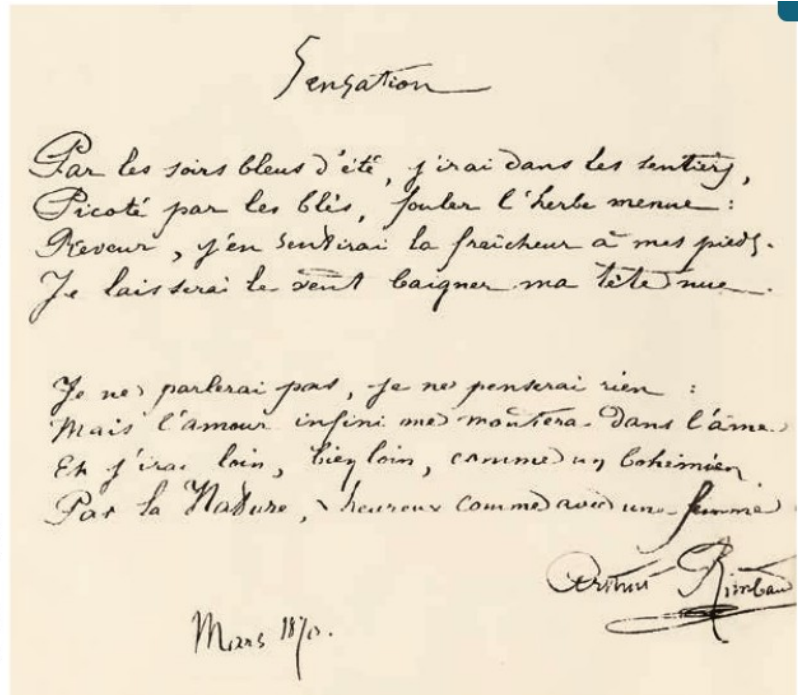 Sensation
Par les soirs bleus d'été, j'irai dans les sentiers,
Picoté par les blés, fouler l'herbe menue :
Rêveur, j'en sentirai la fraîcheur à mes pieds.
Je laisserai le vent baigner ma tête nue.
Je ne parlerai pas, je ne penserai rien :
Mais l'amour infini me montera dans l'âme.
Et j'irai loin, bien loin, comme un bohémien
Par la Nature, heureux comme avec une femme.
Arthur Rimbaud
Mars 1870.